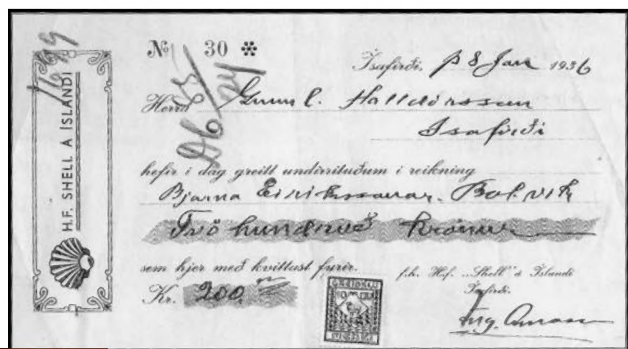 H.F. SHELL Á ÍSLANDI
No 30 *
Ísafirði, þ 8 Jan 1936
Herra Gunnl. Halldórsson
Ísafirði
hefir í dag greitt undirrituðum í reikning
Bjarna Eiríkssonar. Bol.vík
Tvö hundruð krónur
sem hjer með kvittast fyrir.
Kr. 200.
f.h. H.f. „Shell" á Íslandi
Ísafirði.